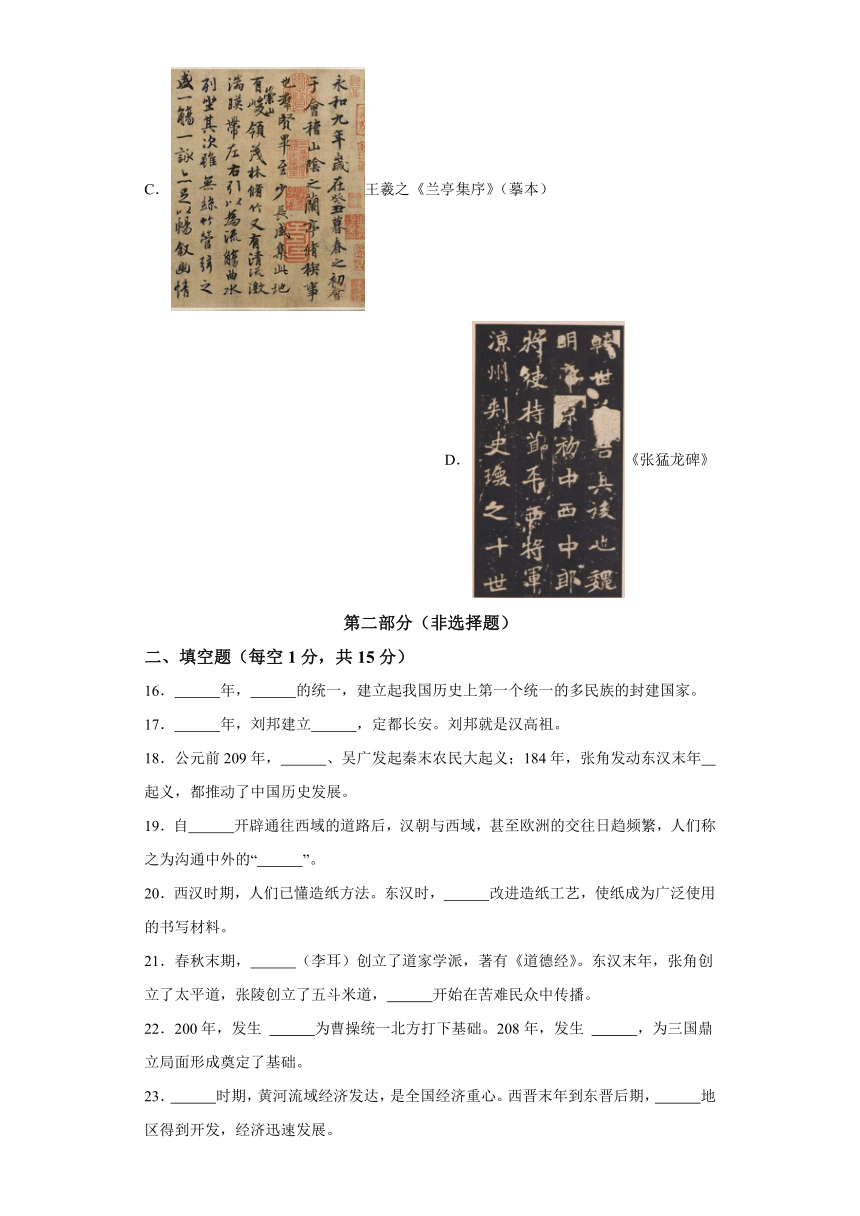 C.
永和九年歲在癸丑暮春之初會
于會稽山陰之蘭亭脩稧事
也羣賢畢至少長咸集此地
有崇山峻領茂林脩竹又有清流激
湍暎帶左右引以為流觴曲水
列坐其次雖無絲竹管弦之
盛一觴一詠亦足以暢叙幽情
王羲之《兰亭集序》（摹本）
D.
世
吾其後也魏
明帝景初中西中郎
將使持節平西將軍
涼州刾史瓊之十世
《张猛龙碑》
第二部分（非选择题）
二、填空题（每空 1 分，共 15 分）
16．______年，______的统一，建立起我国历史上第一个统一的多民族的封建国家。
17．______年，刘邦建立______，定都长安。刘邦就是汉高祖。
18．公元前 209 年，______、吴广发起秦末农民大起义；184 年，张角发动东汉末年__
起义，都推动了中国历史发展。
19．自______开辟通往西域的道路后，汉朝与西域，甚至欧洲的交往日趋频繁，人们称
之为沟通中外的“______”。
20．西汉时期，人们已懂造纸方法。东汉时，______改进造纸工艺，使纸成为广泛使用
的书写材料。
21．春秋末期，______（李耳）创立了道家学派，著有《道德经》。东汉末年，张角创
立了太平道，张陵创立了五斗米道，______开始在苦难民众中传播。
22．200 年，发生 ______为曹操统一北方打下基础。208 年，发生 ______，为三国鼎
立局面形成奠定了基础。
23．______时期，黄河流域经济发达，是全国经济重心。西晋末年到东晋后期，______地
区得到开发，经济迅速发展。